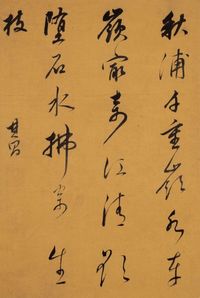 秋浦千重嶺水車
嶺最奇天傾欲
墮石水拂寄生
枝
其昌